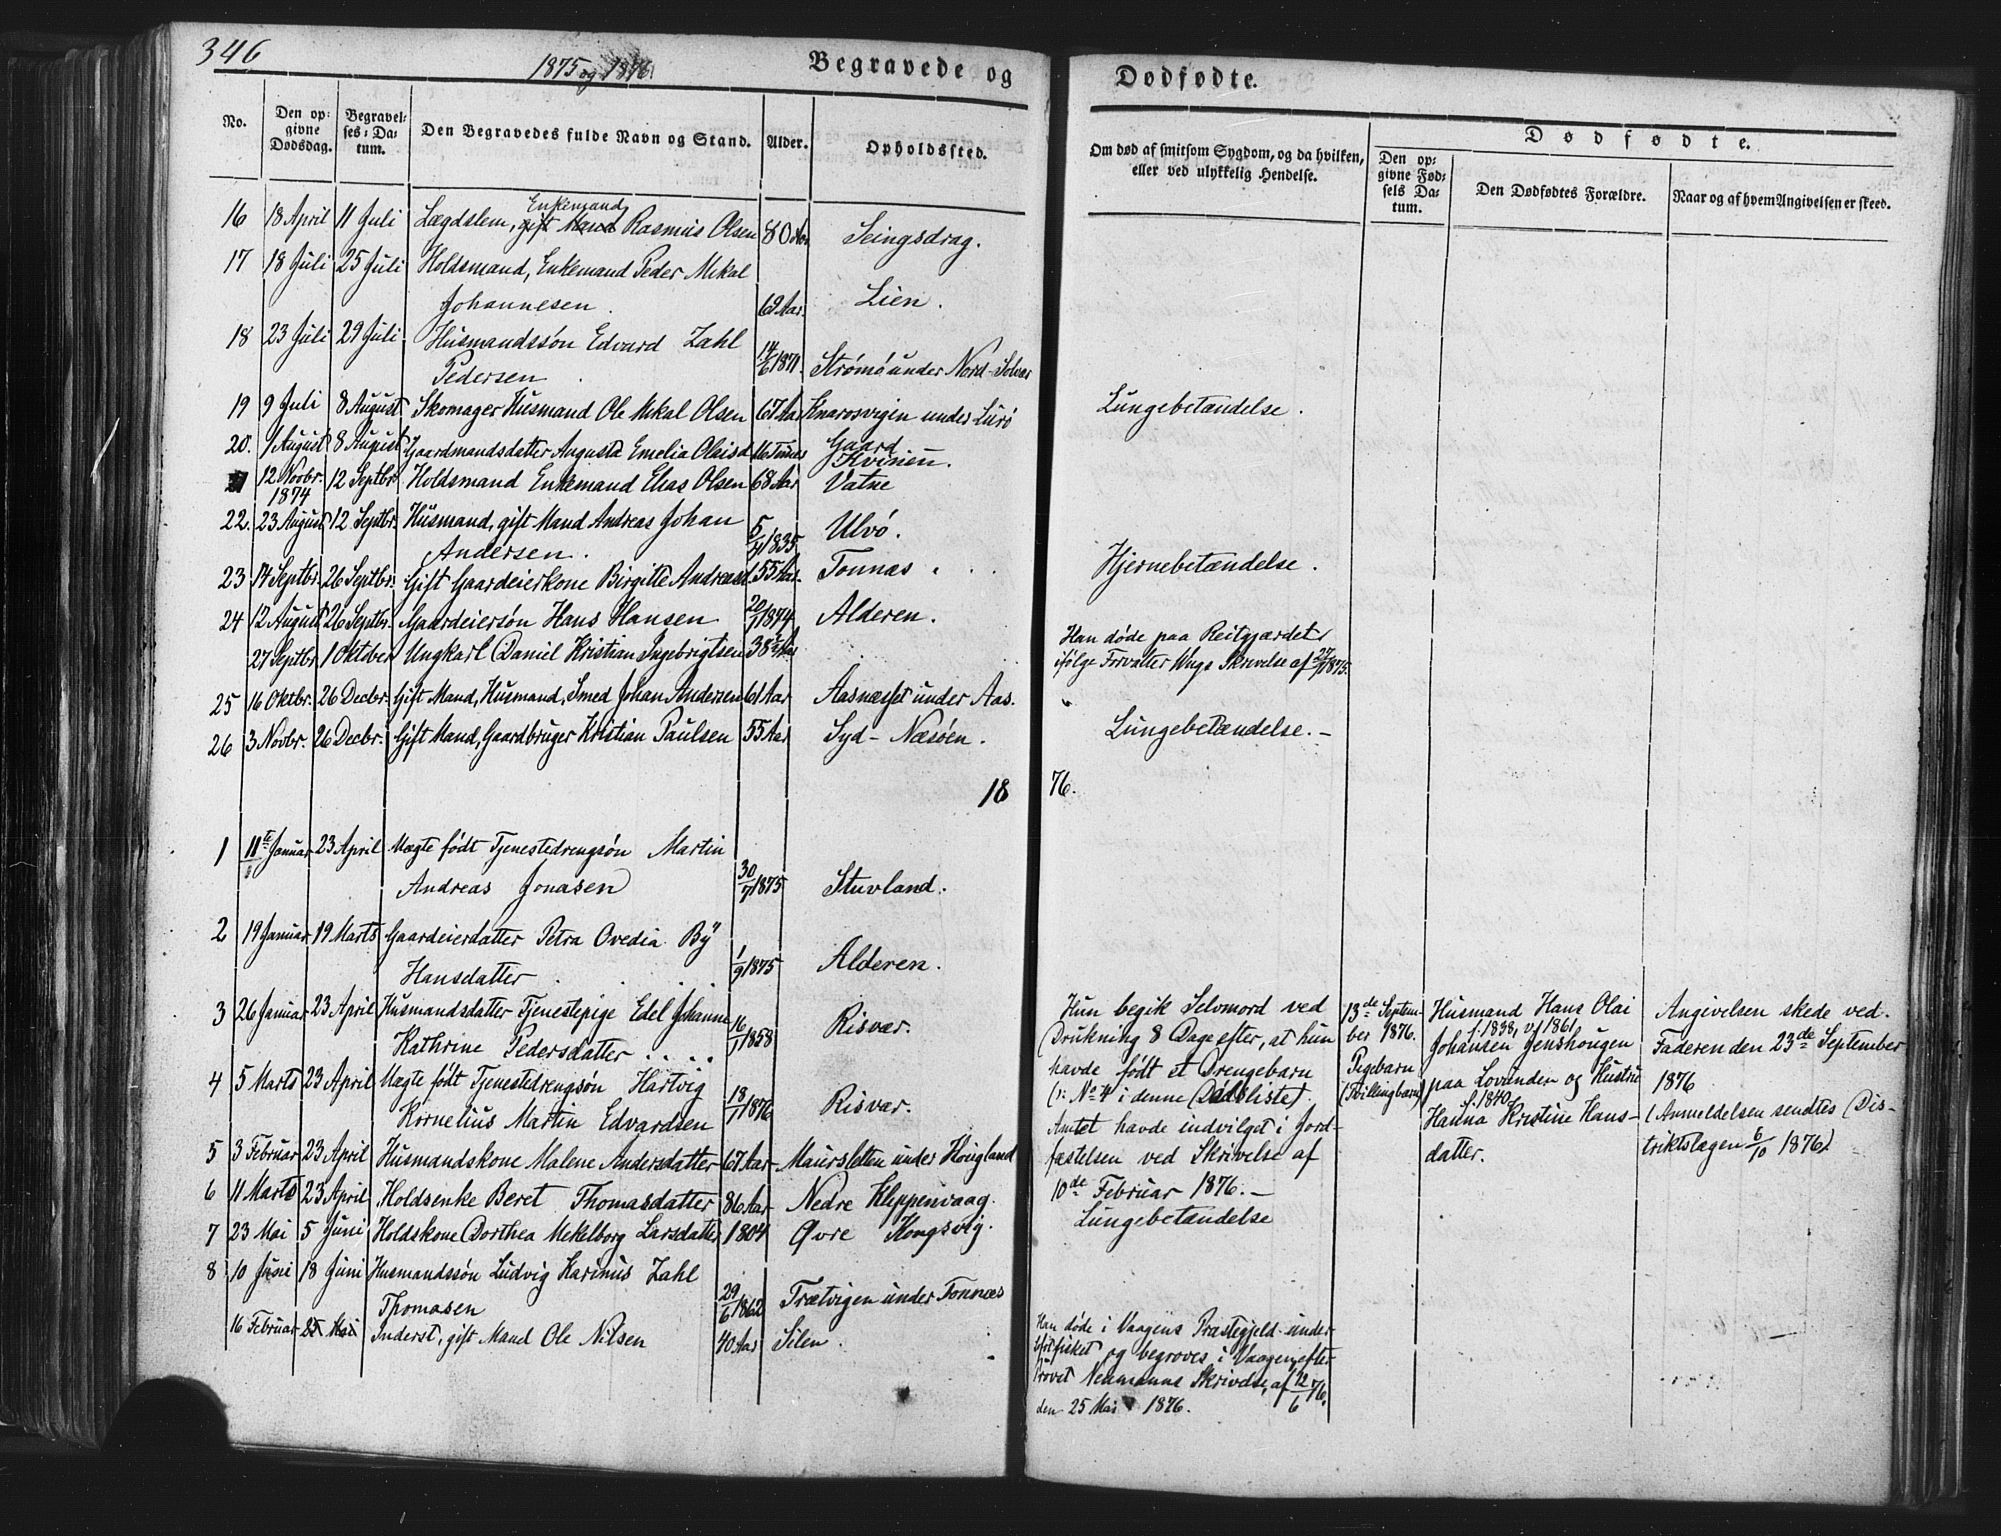 346
1875 og 1876.
Begravede og Dødfødte.
No.
Den opgivne Dødsdag.
Begravelses-Datum.
Den Begravedes fulde Navn og Stand.
Alder.
Opholdssted.
Om død af smitsom Sygdom, og da hvilken, eller ved ulykkelig Hendelse.
Dødfødte.
Den opgivne Fødsels Datum.
Den Dødfødtes Forældre.
Naar og af hvem Angivelsen er skeed.
Enkemand
16 18 April 11 Juli Lægdslem, gift Mand Rasmus Olsen 80 Aar Seingsdrag.
17 18 Juli 25 Juli Holdsmand, Enkemand Peder Mikal
Johannesen. 69 Aar. Lien.
18 23 Juli 29 Juli Husmandssøn Edvard Zahl
Pedersen 14/6 1871. Strømø under Nord-Solvær
19 9 Juli 8 August Skomager Husmand Ole Mikal Olsen 67 Aar Knarosvigen under Lurø Lungebetændelse.
Gaard
20. 1 August 8 August Gaardmandsdatter Augusta Emelia Olaisd 16 Timer Kvinen.
21 12 Novbr. 12 Septbr. Holdsmand Enkemand Elias Olsen 68 Aar Vatne
1874
22. 23 August 12 Septbr. Husmand, gift Mand Andreas Johan
Andersen. 5/4 1835 Ulvø.
23 14 Septbr. 26 Septbr. Gift Gaardeierkone Birgitte Andreasd. 55 Aar. Tonnæs. Hjernebetændelse.
24 12 August 26 Septbr. Gaardeiersøn Hans Hansen 20/7 1874 Alderen.
27 Septbr. 1 Oktober Ungkarl Daniel Kristian Ingebrigtsen 38 ½ Aar
Han døde paa Reitgjærdet
ifølge Forvalter Wugs Skrivelse af 27/9 1875.
25 16 Oktbr. 26 Decbr. Gift Mand, Husmand, Smed Johan Andersen 61 Aar Aasnæsset under Aas.
26 3 Novbr. 26 Decbr. Gift Mand, Gaardbruger Kristian Paulsen 55 Aar Syd-Næsøen. Lungebetændelse.-
1876.
1 11te Januar 23 April Ægte født Tjenestedrengsøn Martin
Andreas Jonasen 30/7 1875 Stuvland.
2 19 Januar 19 Marts Gaardeierdatter Petra Ovedia By
Hansdatter 1/9 1875 Alderen.
3 26 Januar 23 April Husmandsdatter Tjenestepige Edel Johanne
Kathrine Pedersdatter.... 16/1 1858 Risvær.
4 5 Marts 23 April Uægte født Tjenestedrengsøn Hartvig
Kornelius Martin Edvardsen 18/1 1876 Risvær.
5 3 Februar 23 April Husmandskone Malene Andersdatter 67 Aar Maursletten under Haugland
6 11 Marts 23 April Holdsenke Beret Thomasdatter 86 Aar Nedre Kleppenvaag.
7 23 Mai 5 Juni Holdskone Dorthea Mekelborg Larsdatter 1804 Øvre Kongsvig.
8 10 Juni 18 Juni Husmandssøn Ludvig Karinus Zahl
Thomasen 29/6 1862 Trætvigen under Tonnæs
16 Februar 25 Mai Inderst, gift Mand Ole Nilsen 40 Aar Silen.
Hun begik Selvmord ved
Drukning 8 Dage efter, at hun
havde født et Drengebarn
(: No 4 i denne Dødsliste).
Amtet havde indvilget i Jord-
fæstelsen ved Skrivelse af
10de Februar 1876.-
Lungebetændelse
Han døde i Vaagens Præstegjeld under
fisket og begroves i Vaagen, efter
Provst Neumanns Skrivelse af 12/6 76.
den 25 Mai 1876.
13de Septem-
ber 1876.
Pigebarn
(Tvillingbarn)
Husmand Hans Olai
f. 1838, v. 1861
Johansen Jenshougen
paa Lovunden og Hustru
f. 1840
Hanna Kristine Hans-
datter.
Angivelsen skede ved
Faderen den 23de September
1876
(Anmeldelsen sendtes Dis-
triktslægen 6/10 1876)